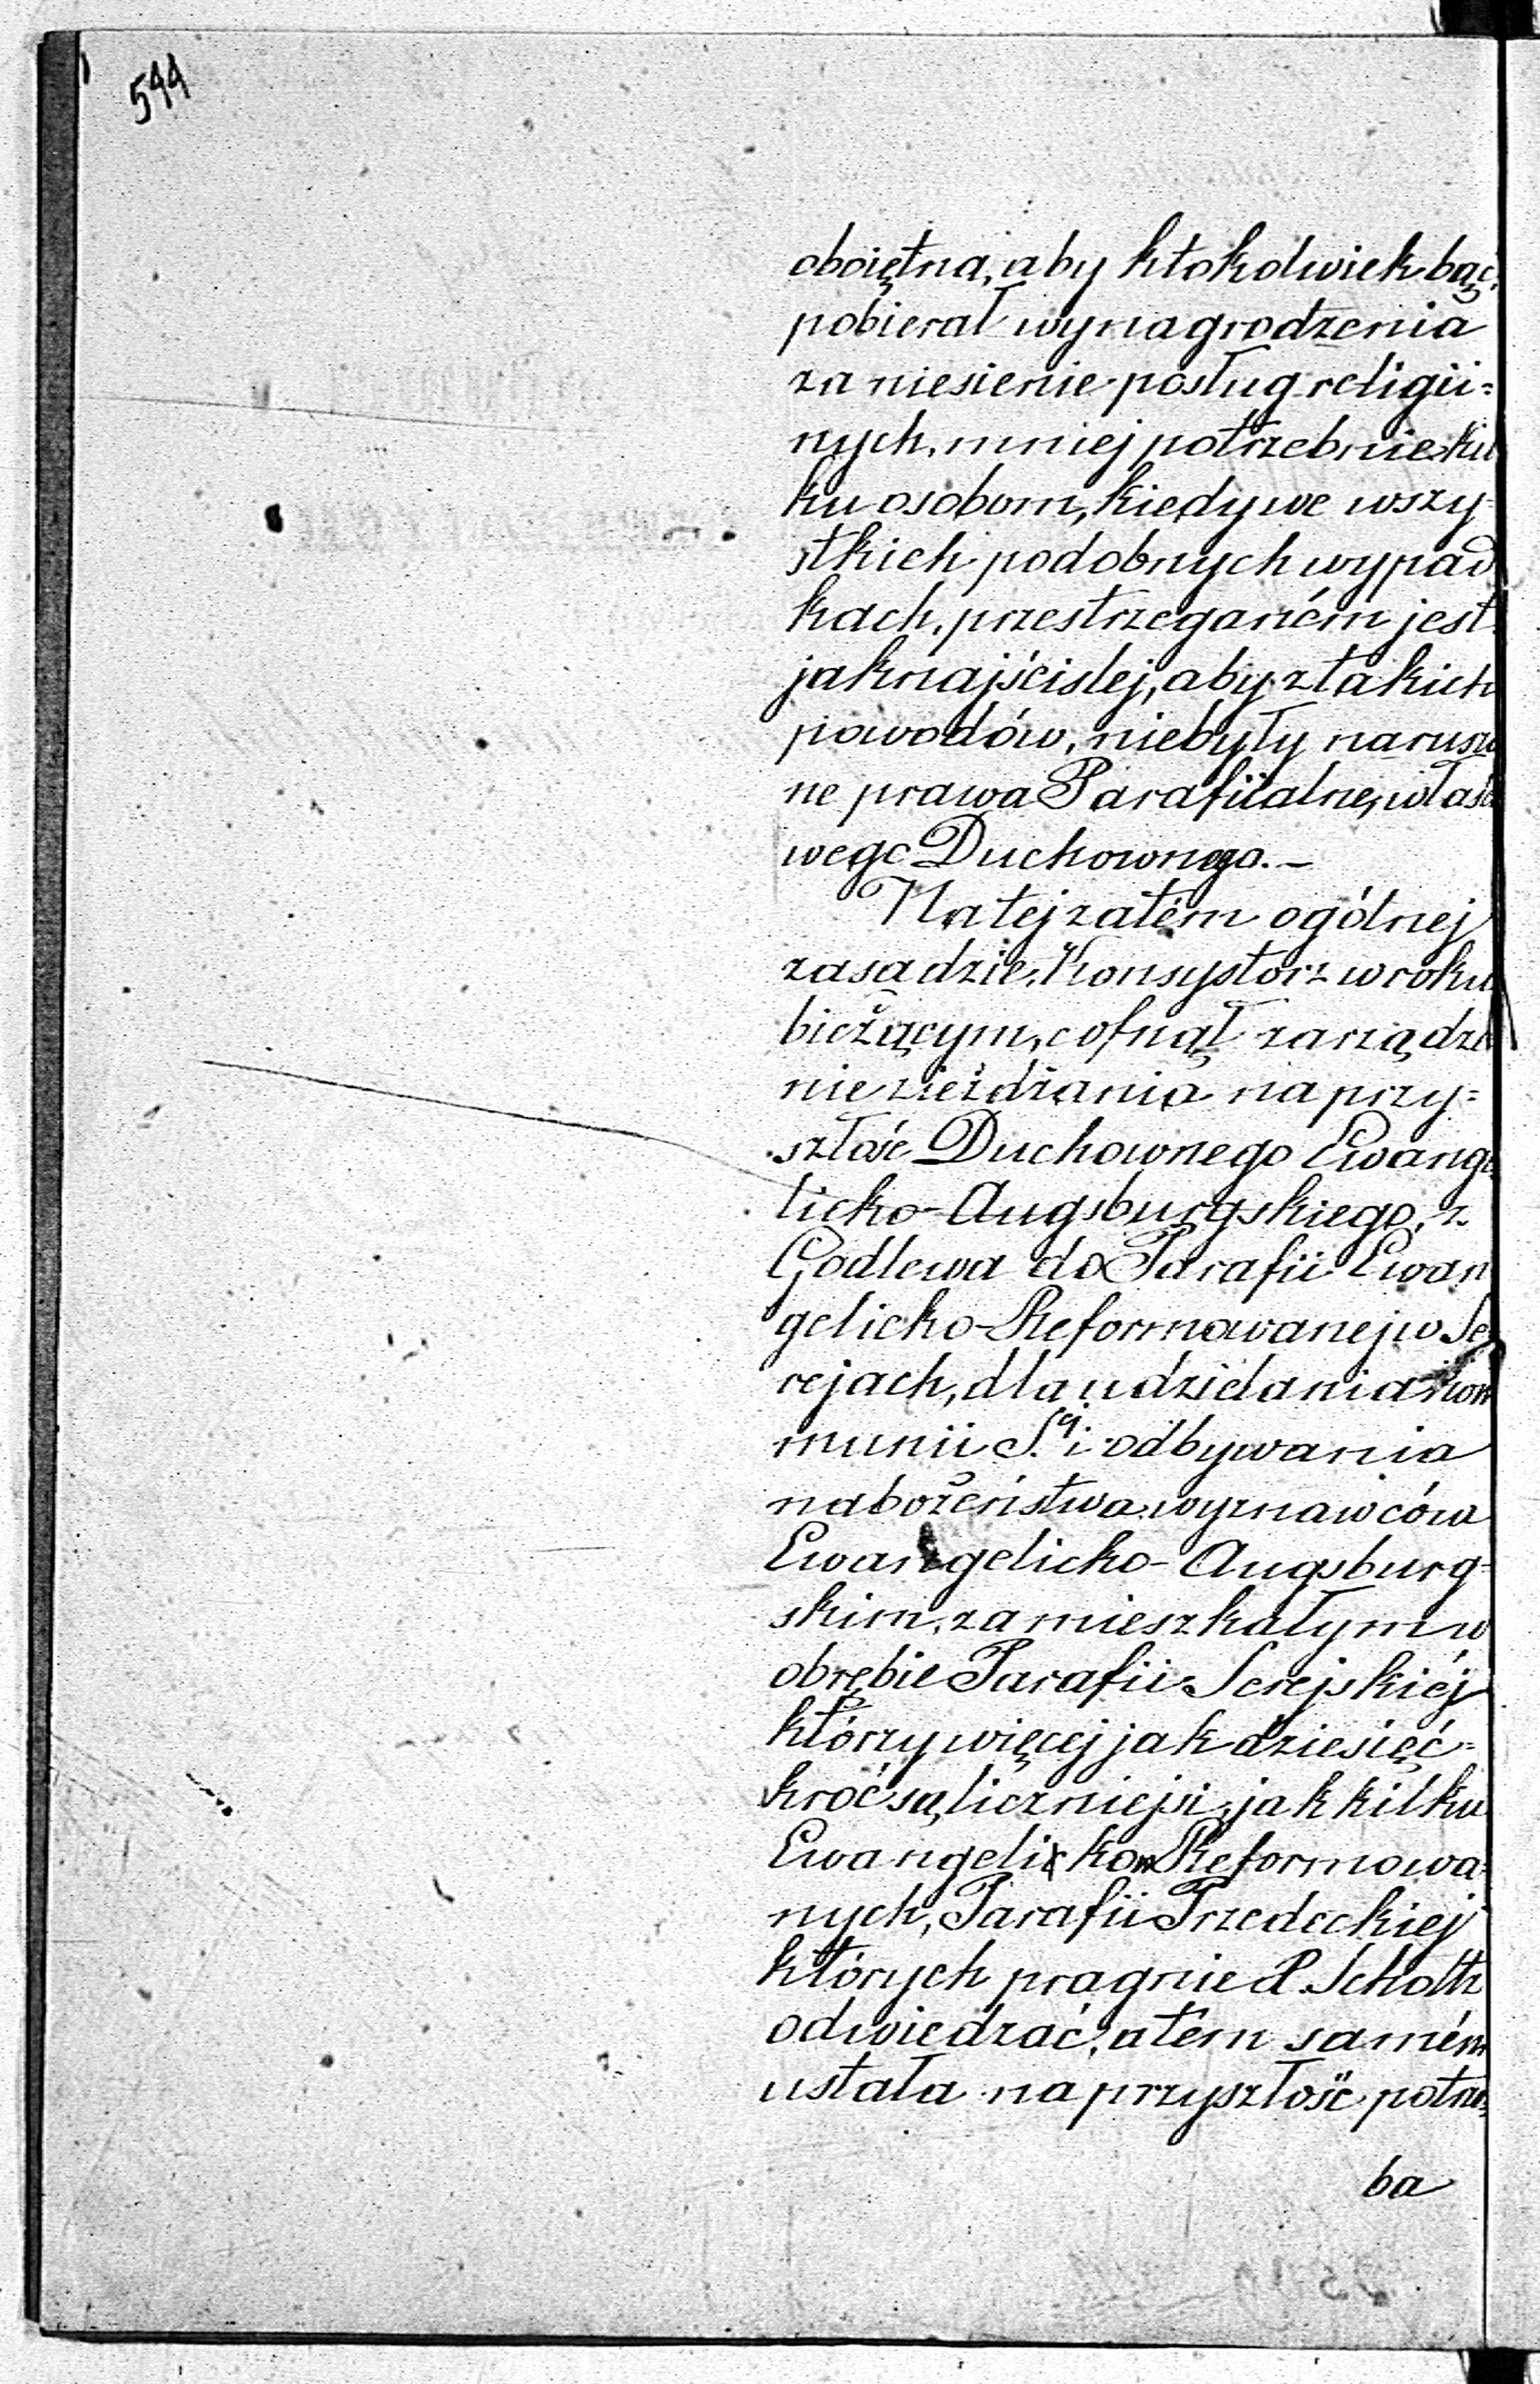 544
oboiętna, aby ktokolwiek bąć
pobierał wynagrodzenia
za niesienie posług religii=
nych, mniej potrzebnie kil
ku osobom, kiedy we wszy
stkich podobnych wypad
kach, przestrzeganém jest
jaknajściślej, aby z takich
powodów, niebyły narusz
ne prawa Parafiialne, właś
wego Duchownego. –
Na tej zatém ogólnej
zasadzie, Konsystorz w roku
bieżącym, cofnął zarządze
nie zieżdżania na przy=
szłość Duchownego Ewange
licko-Augsburgskiego, z
Godlewa do Parafii Ewan
gelicko-Reformowanej w Se
rejach, dla udzielania Kom
munii S. i odbywania
nabożeństwa wyznawców
Ewangelicko-Augsburg=
skim, zamieszkałym w
obrębie Parafii Serejskiéj
którzy więcej jak dziesięć=
kroć są liczniejsi, jak kilku
Ewangelicko Reformowa=
nych, Parafii Przedeckiej
których pragnie P. Scholtz
odwiedzać, a tém samém
ustała na przyszłość potrze
ba